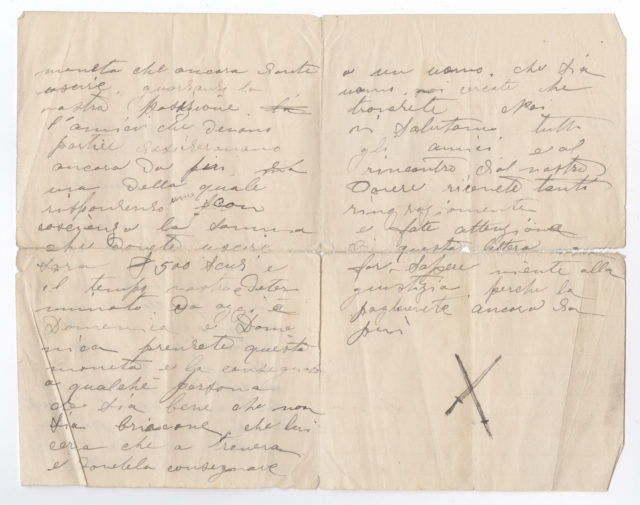 moneta che ancora dovete
uscire, guardando la
nostra posizione
l'amici che devano
partire desiderano
ancora da piu
una della quale
risponsenso con
coscienza la somma
che dovete uscire
sara $ 500 scuti e
il tempo nostro deter
minato da oggi è
Domenica e Dome
nica prenrete questa
moneta e la consegnate
a qualche persona
che sia bene che non
sia briacone, che lui
cera che a trovera
e dovetela consegnare
a un uomo, che sia
uomo, voi cercate che
troverete Noi
vi salutamo tutti
gli amici e al
rincontro dal nostro
dovere ricevete tanti
ringraziamente
e fate attenzione
di questa lettera
far sapere niente alla
giustizia perche la
pagherete ancora da
piu